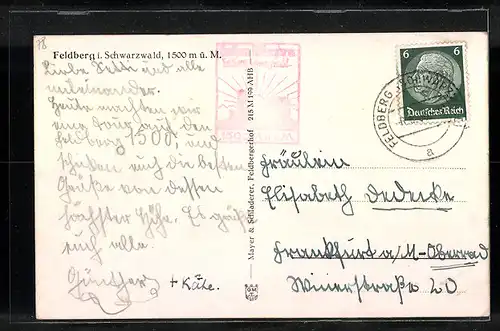 78
Feldberg i. Schwarzwald, 1500 m ü. M.
Liebe Betti und alle
miteinander.
Heute machten wir
eine Tour auf den
Feldberg 1500, und
schicken euch die besten
Grüße von dessen
höchster Höhe. Es grüßt
euch alle.
Günther
+ Käthe.
Mayer & Schladerer, Feldbergerhof 215 M 199 AHB
6 6
Deutsches Reich
FELDBERG
a
Fräulein
Elisabeth Dedecke
Frankfurt a/M-Oberrad
Wienerstraße 20